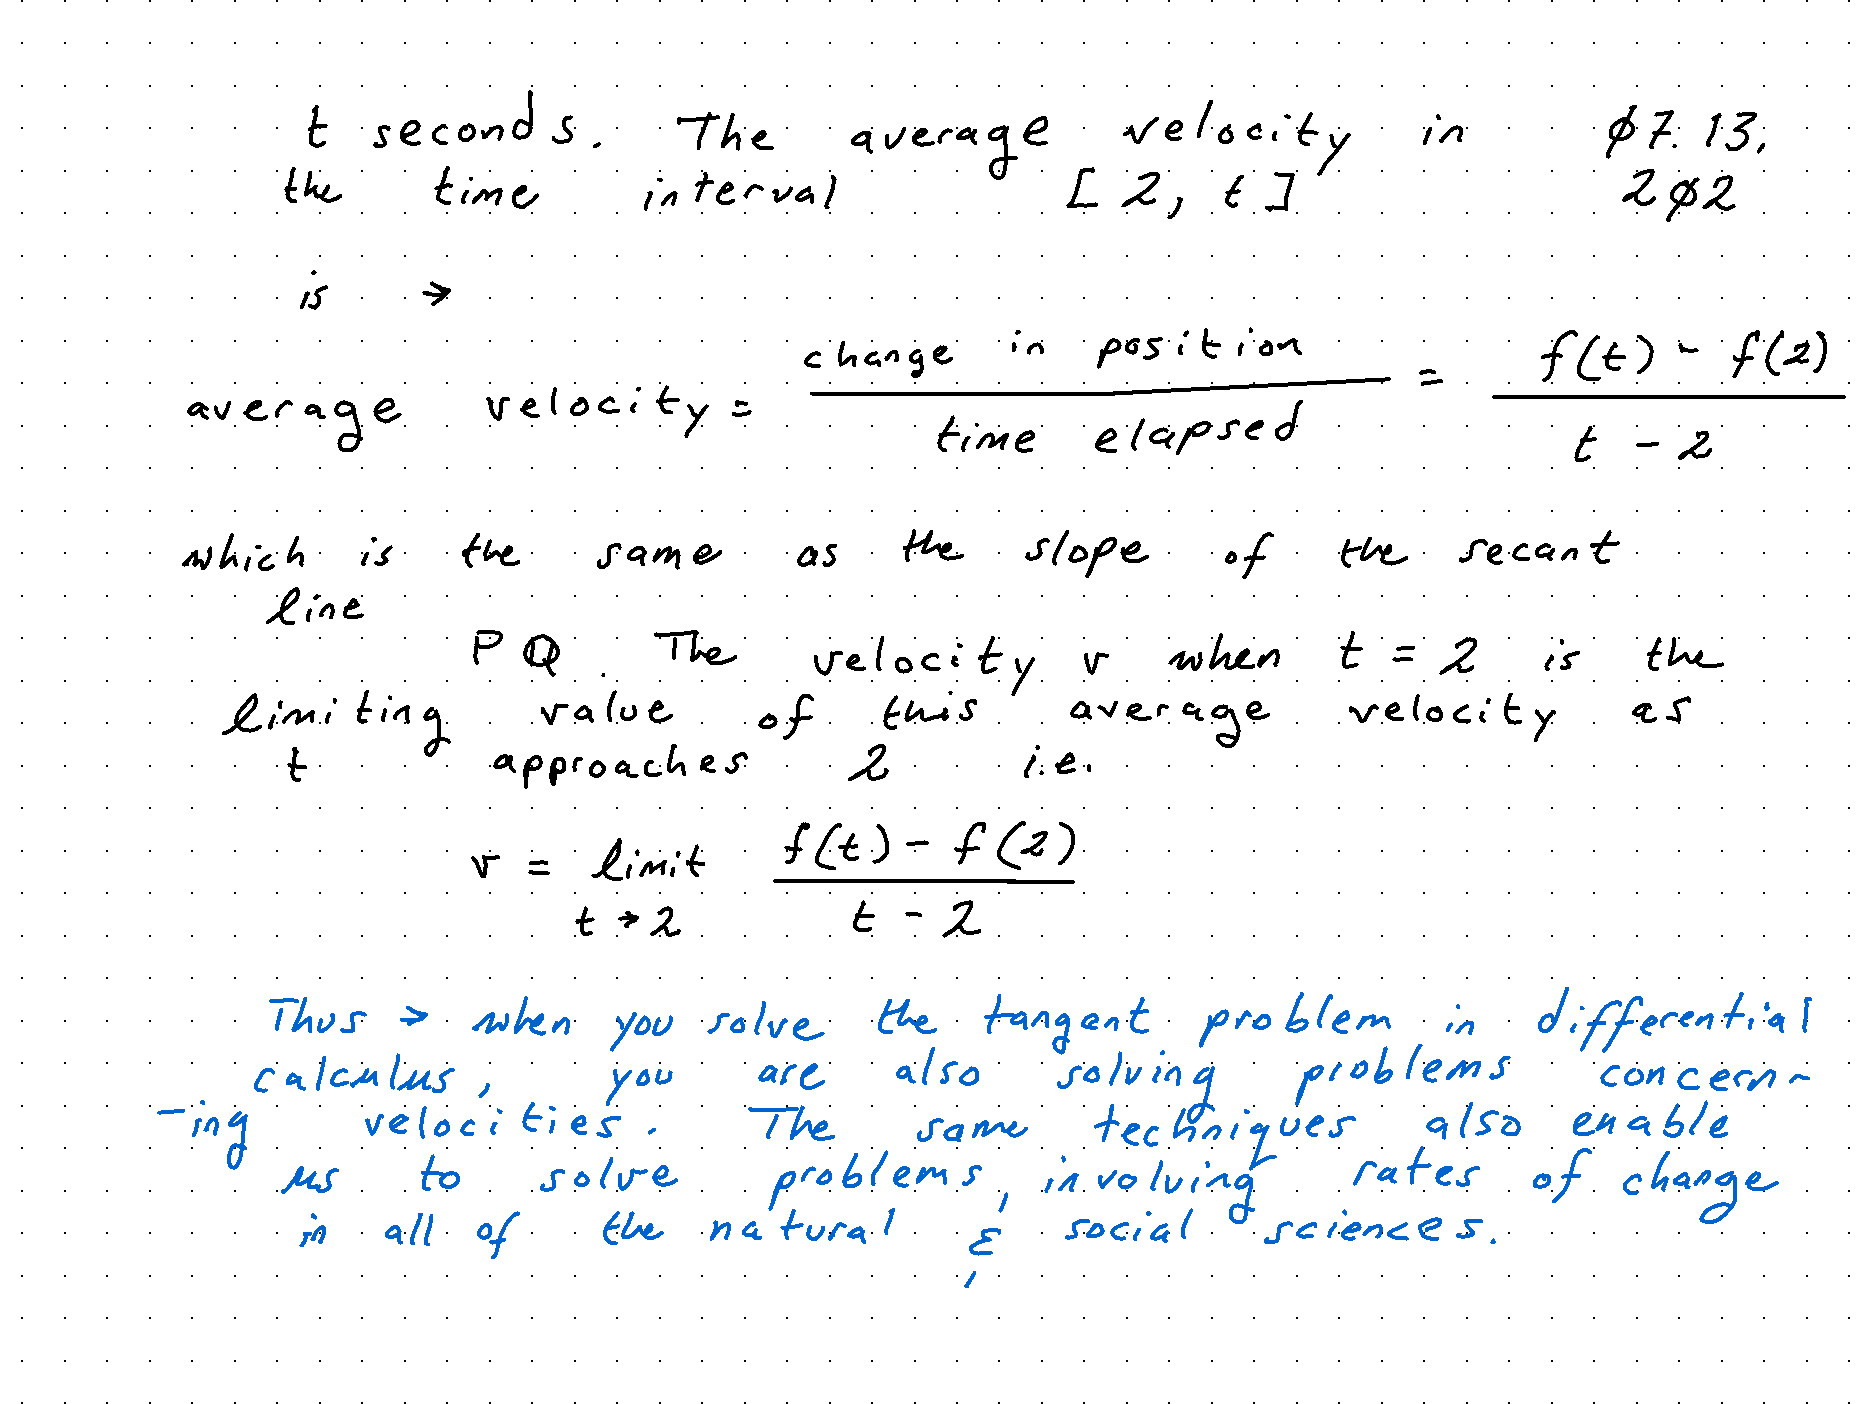 t seconds. The average velocity in ø7.13,
the time interval [2, t] 2ø2
is →
average velocity = change in position / time elapsed = f(t) - f(2) / t - 2
which is the same as the slope of the secant
line
PQ. The velocity v when t = 2 is the
limiting value of this average velocity as
t approaches 2 i.e.
v = limit f(t) - f(2)
t → 2 t - 2
Thus → when you solve the tangent problem in differential
calculus, you are also solving problems concern-
-ing velocities. The same techniques also enable
us to solve problems, involving rates of change
in all of the natural & social sciences.